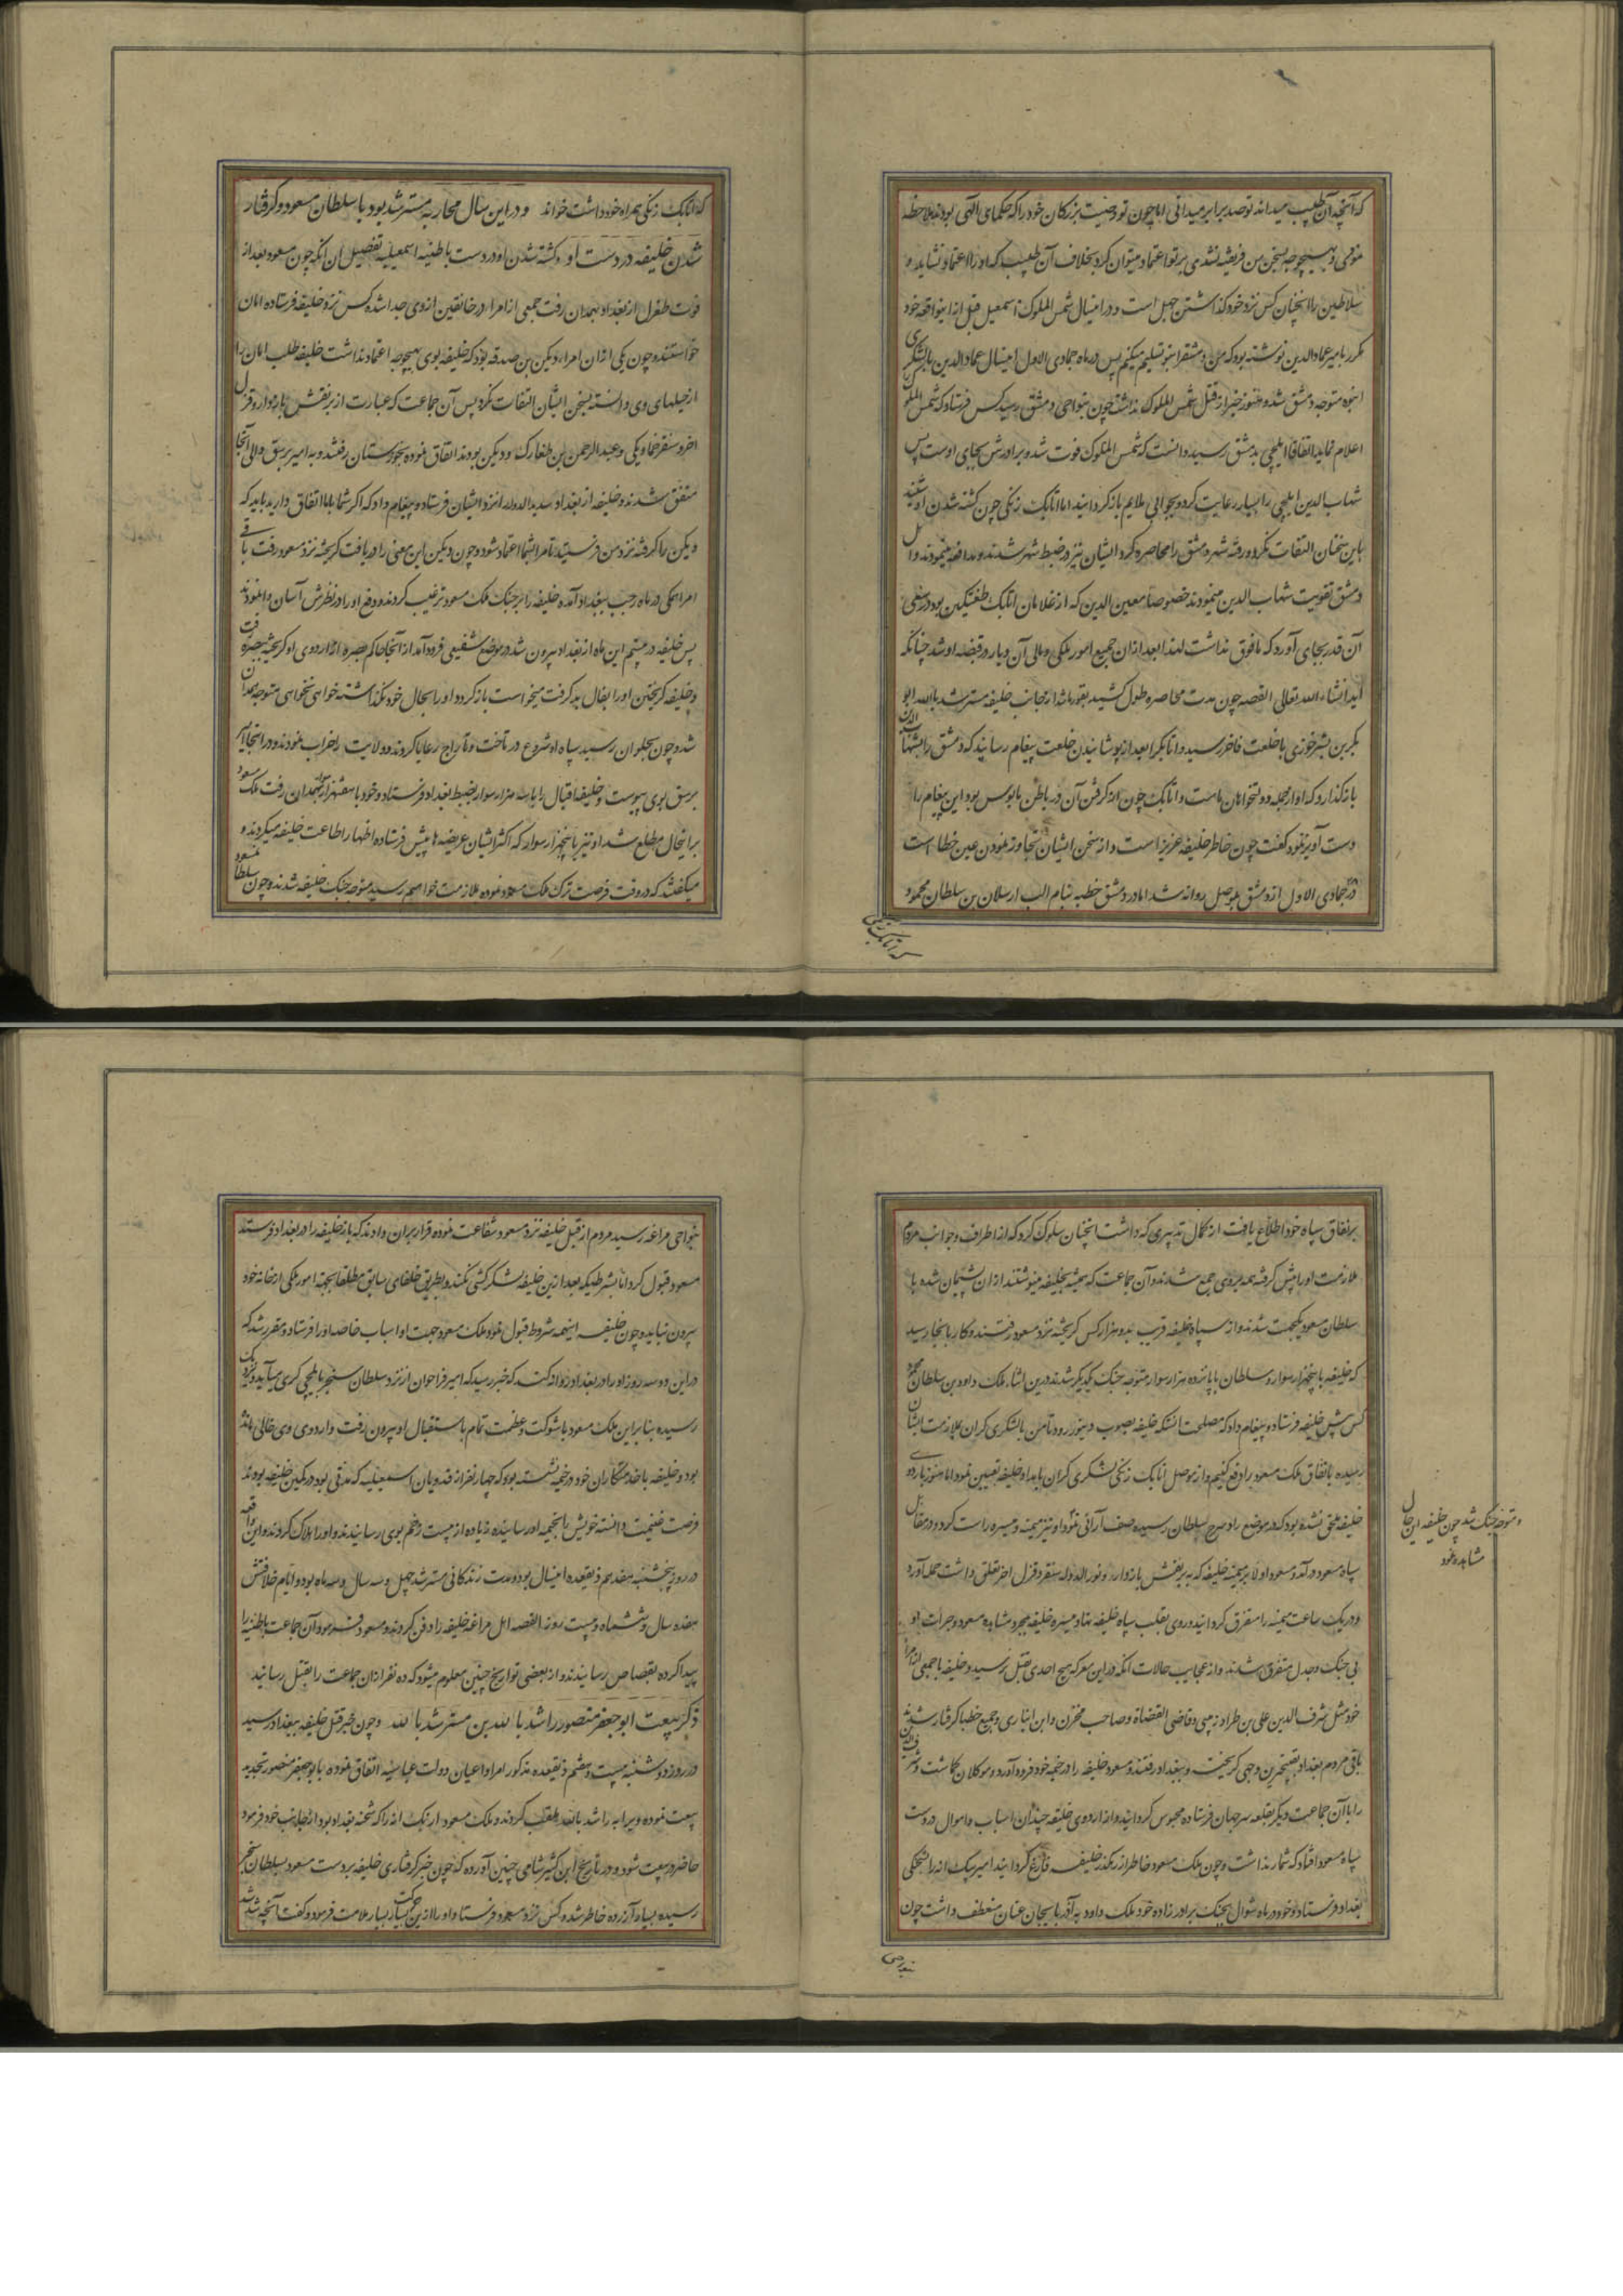 که آنچه آن طبیب میداند تو صد برابر میدانی اما چون تو وصیت بزرکان خود را که حکمای الهی بودند ملاحظه
نمودی و بهیچوجه بسخن من فریفته نشدی بر تو اعتماد میتوان کرد بخلاف آن طبیب که او را اعتماد نشاید و
سلاطین را اینچنان کس نزد خود کذاشتن جهل است و در اینسال شمس الملوک اسمعیل قبل از اینواقعه خود
مکرر بامیر عماد الدین نوشته بود که من دمشق را بتو تسلیم میکنم پس در ماه جمادی الاول اینسال عماد الدین با لشکری
انبوه متوجه دمشق شد و هنوز خبر از قتل شمس الملوک نداشت چون بنواحی دمشق رسید کس فرستاد که شمس الملوک
اعلام نماید اتفاقا ایلچی بدمشق رسید دانست که شمس الملوک فوت شد و برادرش بجای اوست پس
شهاب الدین ایلچی را بسیار رعایت کرد و بجوابی ملایم باز کردانید اما اتابک زنکی چون کشته شدن او شنید
باین سخنان التفات نکرد و رفته شهر دمشق را محاصره کرد و ایشان نیز در ضبط شهر شدند و مدافعه مینمودند و اهل
دمشق تقویت شهاب الدین مینمودند خصوصا معین الدین که از غلامان اتابک طغتیکین بود در سعی
آن قدر بجای آورد که مافوق نداشت لهذا بعد از آن جمیع امور ملکی و مالی آن دیار در قبضه او شد چنانکه
آید انشاء الله تعالی القصه چون مدت محاصره طول کشید بقورباشدار جانب خلیفه مسترشد بالله ابو
بکر بن بشر خوزی با خلعت فاخر رسید و اتابک را بعد از پوشانیدن خلعت پیغام رسانید که دمشق را بشهاب الدین
باز کذارد که او از جمله دولتخواهان ماست و اتابک چون از کرفتن آن در باطن مایوس بود این پیغام را
دست آویز نمود کفت چون خاطر خلیفه عزیز است و از سخن ایشان تجاوز نمودن عین خطا است
در جمادی الاول از دمشق بموصل روانه شد اما در دمشق خطبه بنام الب ارسلان بن سلطان محمود
که اتابک زنکی
که اتابک زنکی همراه خود داشت خواند و در این سال محاربه مسترشد بود با سلطان مسعود و کرفتار
شدن خلیفه در دست او و کشته شدن او در دست باطنیه اسمعیلیه تفصیل آن آنکه چون مسعود بعد از
فوت طغرل از بغداد بهمدان رفت جمعی از امرا در خانقین از وی جدا شده کس نزد خلیفه فرستاده امان
خواستند و چون یکی از ان امرا دبیس بن صدقه بود که خلیفه بوی بهیچوجه اعتماد نداشت خلیفه طلب امان را
از حیلهای وی دانسته بسخن ایشان التفات نکرد پس آن جماعت که عبارت از برنقش بازدار و قزل
اخر و سنقر خمارتکی و عبد الرحمن بن طغارک و دبیس بودند اتفاق نموده بخوزستان رفتند و به امیر برسق والی آنجا
متفق شدند و خلیفه از بغداد سدید الدوله را نزد ایشان فرستاد و پیغام داد که اکر شما با ما اتفاق دارید باید که
دبیس را کرفته نزد من فرستید تا مرا بشما اعتماد شود و چون دبیس این معنی را دریافت کریخته نزد مسعود رفت باقی
امرا همکی در ماه رجب ببغداد آمده خلیفه را بر جنک ملک مسعود ترغیب کردند و دفع او را در نظرش آسان وانمودند
پس خلیفه در بیستم این ماه از بغداد بیرون شد در موضع شفیعی فرود آمد از آنجا حاکم بصره از اردوی او کریخته ببصره رفت
و خلیفه کریختن او را بفال بد کرفت میخواست باز کردد او را بحال خود نکذاشته خواهی نخواهی متوجه همدان
شد و چون بحلوان رسید سپاه او شروع در تاخت و تاراج رعایا کردند و ولایت را خراب نمودند و در آنجا امیر
برسق بوی پیوست و خلیفه اقبال را با سه هزار سوار بضبط بغداد فرستاد و خود با هفتهزار سوار بهمدان رفت ملک مسعود
بر اینحال مطلع شد او نیز با پنجهزار سوار که اکثر ایشان عریضه ها پیش فرستاده اظهار اطاعت خلیفه میکردند و
میکفتند که در وقت فرصت ترک ملک مسعود نموده بملازمت خواهیم رسید متوجه جنک خلیفه شدند و چون سلطان مسعود
بر نفاق سپاه خود اطلاع یافت از کمال تدبیری که داشت آنچنان سلوک کرد که از اطراف و جوانب مردم
ملازمت او را پیش کرفته همه بر وی جمع شدند و آن جماعت که همیشه بخلیفه مینوشتند از ان پشیمان شده با
سلطان مسعود یکجهت شدند و از سپاه خلیفه قریب بدو هزار کس کریخته نزد مسعود رفتند و کار بآنجا رسید
که خلیفه با پنجهزار سوار و سلطان با پانزده هزار سوار متوجه جنک یکدیکر شدند در این اثناء ملک داود بن سلطان محمود
کس پیش خلیفه فرستاد و پیغام داد که مصلحت آنستکه خلیفه بصوب دینور رود تا من با لشکری کران بملازمت ایشان
رسیده باتفاق ملک مسعود را دفع کنیم و از موصل اتابک زنکی لشکری کران بامداد خلیفه تعیین نمود اما هنوز باردوی
خلیفه ملحق نشده بود که در موضع دامرج سلطان رسیده صف آرائی نمود او نیز میمنه و میسره راست کرد و در مقابل
و متوجه جنک شد چون خلیفه این حال
مشاهده نمود
سپاه مسعود درآمد و مسعود اولا بر میمنه خلیفه که به برنقش بازدار و نور الدوله سنقر و قزل اخر تعلق داشت حمله آورد
و در یک ساعت میمنه را متفرق کردانید و روی بقلب سپاه خلیفه نهاد و میسره خلیفه بمجرد مشاهده مسعود و جرات او
بی جنک و جدل متفرق شدند و از عجایب حالات آنکه در این معرکه هیچ احدی بقتل نرسید و خلیفه با جمعی از امرا
خود مثل شرف الدین علی بن طراد زینبی و قاضی القضاة و صاحب مخزن و ابن انباری و جمیع خطبا کرفتار شدند
باقی مردم بغداد بقبیحترین وجهی کریخت و ببغداد رفتند و مسعود خلیفه را در خیمه خود فرود آورد و موکلان کماشت و شرف الدین
را با آن جماعت دیکر بقلعه سرجهان فرستاده محبوس کردانید و از اردوی خلیفه چندان اسباب و اموال در دست
سپاه مسعود افتاد که شمار نداشت و چون ملک مسعود خاطر از رهکذر خلیفه فارغ کردانید امیر بیک ابه را بشحنکی
بغداد فرستاد و خود در ماه شوال بجنک برادر زاده خود ملک داود به آذربایجان عنان منعطف داشت چون
بنواحی
بنواحی مراغه رسید مردم از قبل خلیفه نزد مسعود شفاعت نموده قرار بر آن دادند که باز خلیفه را در بغداد فرستند
مسعود قبول کرد اما بشرطیکه بعد ازین خلیفه لشکر کشی نکند و بطریق خلفای سابق مطلقا بجهة امور ملکی از خانه خود
بیرون نیاید و چون خلیفه اینهمه شروط قبول نمود ملک مسعود جهت او اسباب خاصه او را فرستاد و مقرر شد که
در این دو سه روز او را در بغداد روانه کنند که خبر رسید که امیر قراخوان از نزد سلطان سنجر بایلچی کری میآید و نزدیک
رسیده بنا بر این ملک مسعود با شوکت و عظمت تمام باستقبال او بیرون رفت و اردوی وی خالی مانده
بود و خلیفه با خدمتکاران خود در خیمه نشسته بود که چهار نفر از فدویان اسمعیلیه که مدتی بود در کمین خلیفه بودند
فرصت غنیمت دانسته خویش را بخیمه او رسانیده زیاده از بیست زخم بوی رسانیدند و او را هلاک کردند و این واقعه
در روز پنجشنبه هفدهم ذیقعده اینسال بود و مدت زندکانی مسترشد چهل و سه سال و سه ماه بود و ایام خلافتش
هفده سال و ششماه و بیست روز القصه اهل مراغه خلیفه را دفن کردند و مسعود فرمود آن جماعت باطنیه را
پیدا کرده بقصاص رسانیدند و از بعضی تواریخ چنین معلوم میشود که ده نفر ازان جماعت را بقتل رسانید
ذکر بیعت ابو جعفر منصور راشد بالله بن مسترشد بالله و چون خبر قتل خلیفه ببغداد رسید
در روز دوشنبه بیست و هشتم ذیقعده مذکور امرا و اعیان دولت عباسیه اتفاق نموده بابو جعفر منصور تجدید
بیعت نموده ویرا به راشد بالله ملقب کردند و ملک مسعود از بک ابه را که شحنه بغداد بود از جانب خود فرمود
حاضر در بیعت شود و در تاریخ ابن کثیر شامی چنین آورده که چون خبر کرفتاری خلیفه بر دست مسعود بسلطان سنجر
رسیده بسیار آزرده خاطر شده کس نزد مسعود فرستاد و او را ازین حرکت بسیار بسیار ملامت فرمود و کفت آنچه شد شد